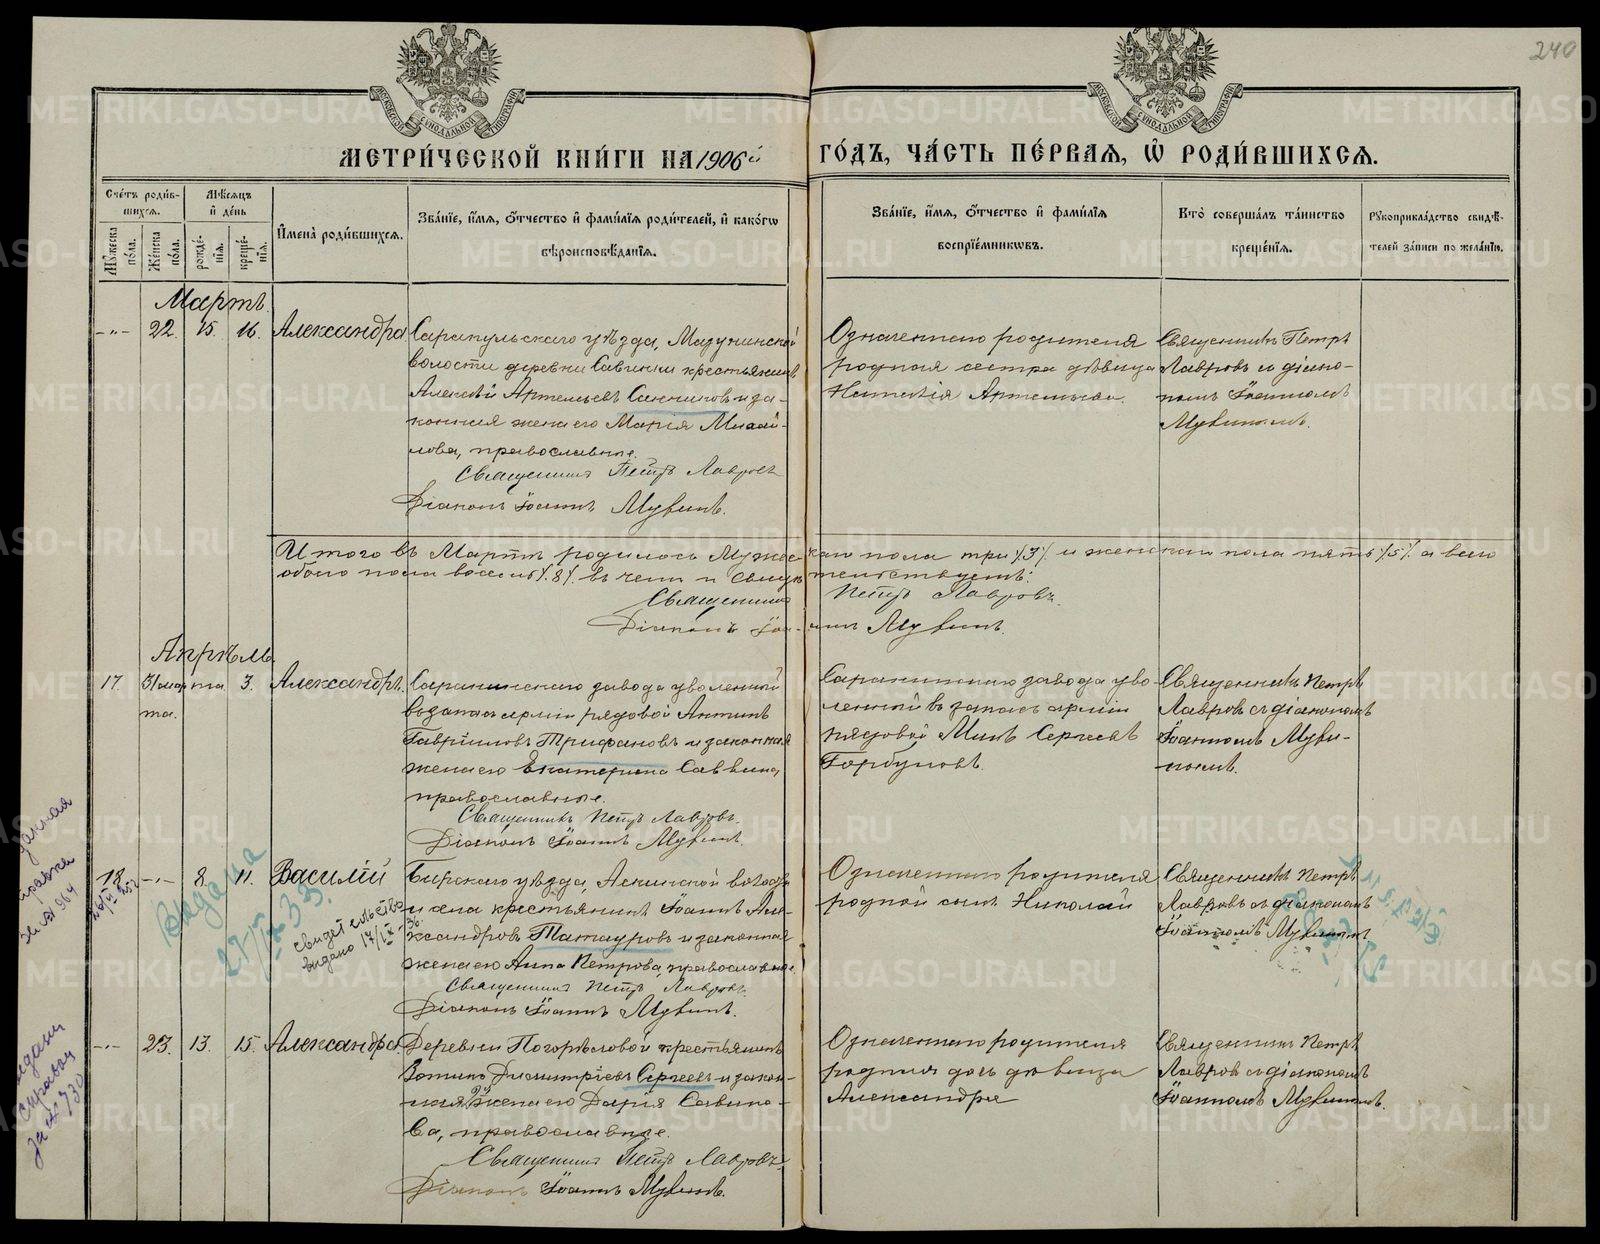 240
МОСКОВСКОЙ СѴНОДАЛЬНОЙ ТИПОГРАФІИ
МОСКОВСКОЙ СѴНОДАЛЬНОЙ ТИПОГРАФІИ
МЕТРИ́ЧЕСКОЙ КНИ́ГИ НА 1906й ГО́ДЪ, ЧА́СТЬ ПЕ́РВАЯ, Ѡ РОДИ́ВШИХСЯ.
Сче́тъ роди́вшихся.
Мꙋжеска по́ла.
Же́нска по́ла.
Мѣ́сяцъ и де́нь
рожде́нія.
креще́нія.
И҆мена̀ роди́вшихся.
Зва́нїе, и҆́мя, ѻ҆́тчество и҆ фами́лїя роди́телей, и҆ како́гѡ вѣроисповѣ́данїя.
Зва́нїе, и҆́мя, ѻ҆́тчество и҆ фами́лїя воспрїе́мникѡвъ.
Кто̀ соверша́лъ та́инство креще́нїя.
Рꙋкоприкла́дство свидѣ́телей за́писи по жела́нїю.
Мартъ.
-"- 22. 15. 16. Александра
Сарапульскаго уѣзда, Мазунинской
волости деревни Савинки крестьянинъ
Алексѣй Артемьевъ Санниковъ и за-
конная жена его Марія Михай-
лова, православные.
Священникъ Петръ Лавровъ
Діаконъ Іоаннъ Мувинъ.
Означеннаго родителя
родная сестра дѣвица
Наталія Артемьева.
Священникъ Петръ
Лавровъ и діако-
номъ Іоанномъ
Мувинымъ.
Итого въ Мартѣ родилось Мужескаго пола три /3/ и женскаго пола пять /5/ а всего
обоего пола восемь /8/ въ чемъ и Свидѣтельствуемъ:
Священникъ Петръ Лавровъ.
Діаконъ Іоаннъ Мувинъ.
Апрѣль.
17. 31 марта. 3. Александръ.
Саранинскаго завода уволенный
въ запасъ арміи рядовой Антипъ
Гавріиловъ Трифановъ и законная
жена его Екатерина Саввина,
православные.
Священникъ Петръ Лавровъ.
Діаконъ Іоаннъ Мувинъ.
Саранинскаго завода уво-
ленный въ запасъ арміи
рядовой Миней Сергеевъ
Горбуновъ.
Священникъ Петръ
Лавровъ съ діакономъ
Іоанномъ Муви-
нымъ.
18. -"- 8. 11. Василій
Бирскаго уѣзда, Аскинской волости
и села крестьянинъ Іоаннъ Але-
ксандровъ Татауровъ и законная
жена его Анна Петрова, православные.
Священникъ Петръ Лавровъ.
Діаконъ Іоаннъ Мувинъ.
Означеннаго родителя
родной сынъ Николай
Священникъ Петръ
Лавровъ съ діакономъ
Іоанномъ Мувинымъ
Выдана
свидетельство
выдано 17/IX-36.
-"- 23. 13. 15. Александра
Деревни Погорѣловой крестьянинъ
Зотикъ Димитріевъ Сергеевъ и закон-
ная жена его Дарія Савино-
ва, православные.
Священникъ Петръ Лавровъ
Діаконъ Іоаннъ Мувинъ.
Означеннаго родителя
родная дочь дѣвица
Александра
Священникъ Петръ
Лавровъ съ діакономъ
Іоанномъ Мувинымъ.
выдана
справка
за № 730
METRIKI.GASO-URAL.RU